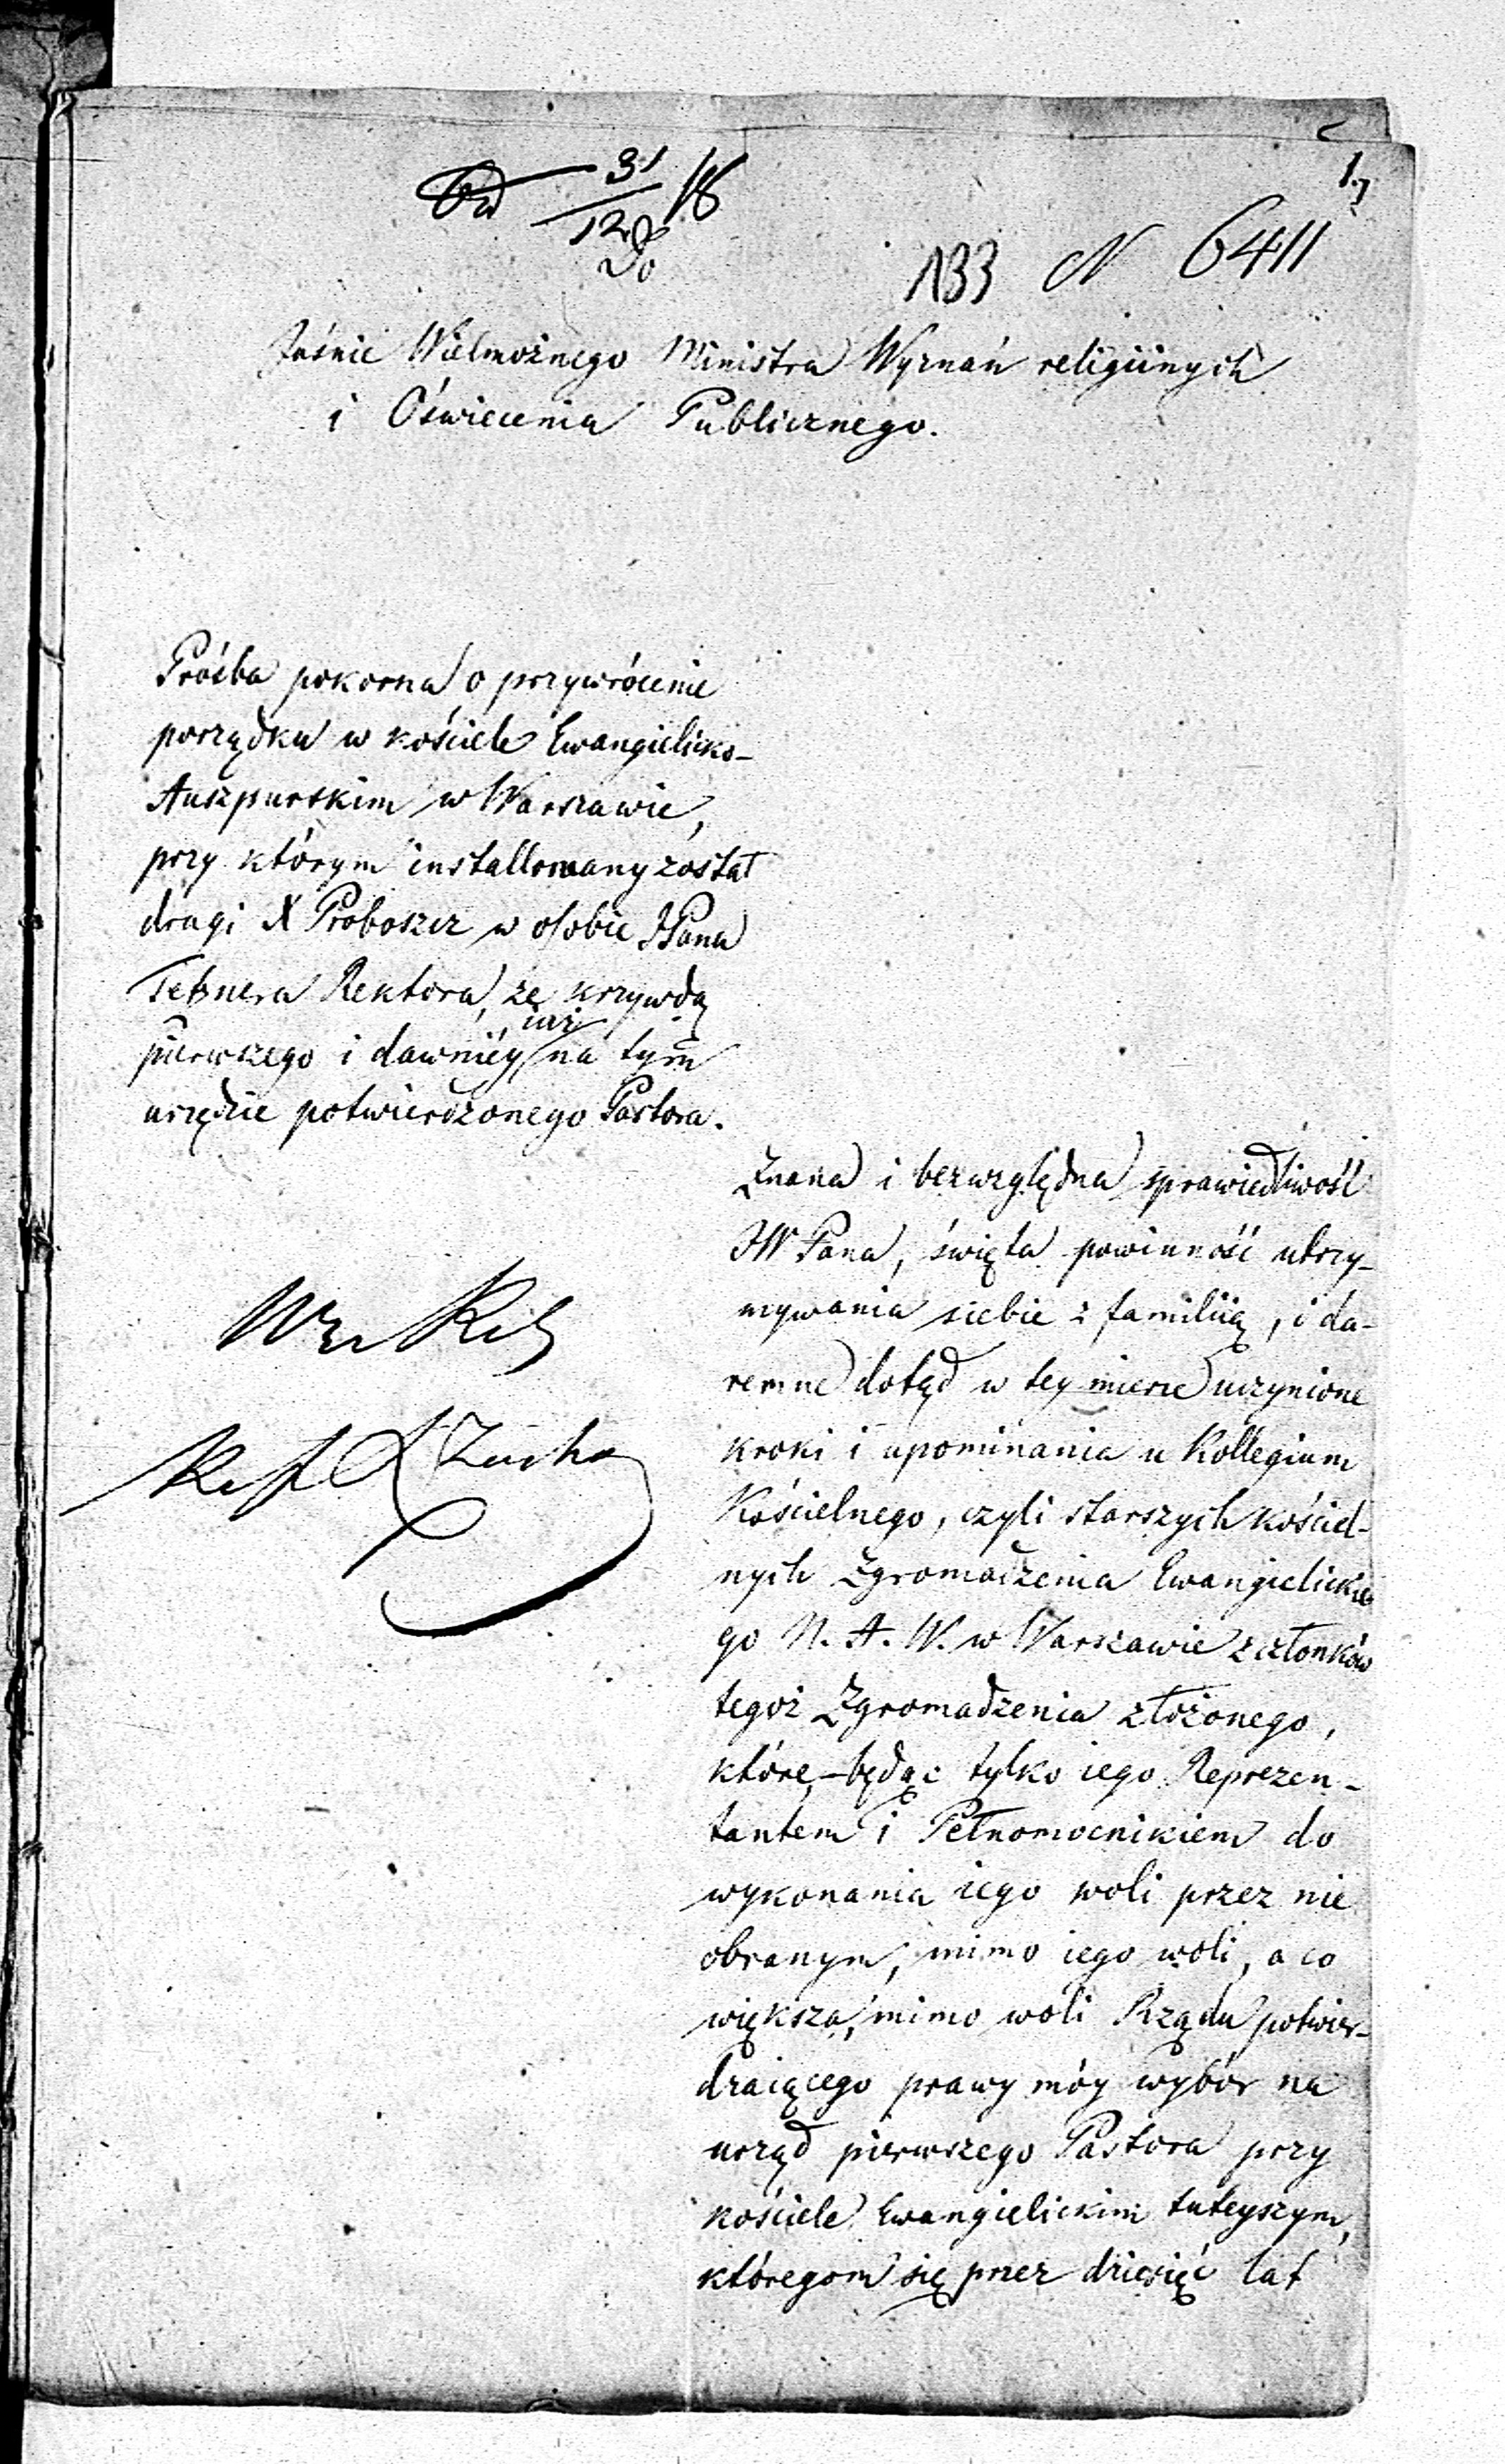 31/12 18
1.
Do
133 N 6411
Jaśnie Wielmożnego Ministra Wyznań religiinych
i Oświecenia Publicznego.
Prośba pokorna o przywrócenie
porządku w kościele Ewangielicko-
Auszpurskim w Warszawie,
przy którym installowany został
drugi X Proboszcz w osobie JPana
Tetznera Rektora, ze krzywdą
pierwszego i dawniéy iuż na tym
urzędzie potwierdzonego Pastora.
Znana i bezwzględna sprawiedliwość
JW Pana, święta powinność utrzy-
mywania siebie z familiią, i da-
remne dotąd w tey mierze uczynione
kroki i upominania u Kollegium
Kościelnego, czyli starszych kościel-
nych Zgromadzenia Ewangielickie
go N. A. W. w Warszawie z członków
tegoż Zgromadzenia złożonego,
które, będąc tylko iego Reprezen-
tantem i Pełnomocnikiem do
wykonania iego woli przez nie
obranym, mimo iego woli, a co
większa, mimo woli Rządu potwier-
dzaiącego prawy móy wybór na
urząd pierwszego Pastora przy
kościele Ewangielickim tuteyszym,
któregom się przez dziesięć lat